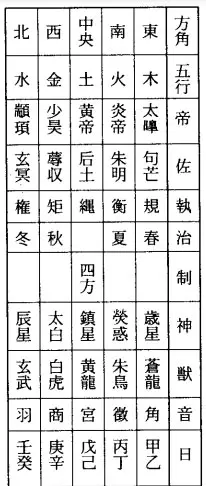 方角 五行 帝 佐 執 治 制 神 獸 音 日
東 木 太皞 句芒 規 春 歳星 蒼龍 角 甲乙
南 火 炎帝 朱明 衡 夏 熒惑 朱鳥 徵 丙丁
中央 土 黄帝 后土 繩 四方 鎮星 黄龍 宮 戊己
西 金 少昊 蓐収 矩 秋 太白 白虎 商 庚辛
北 水 顓頊 玄冥 権 冬 辰星 玄武 羽 壬癸